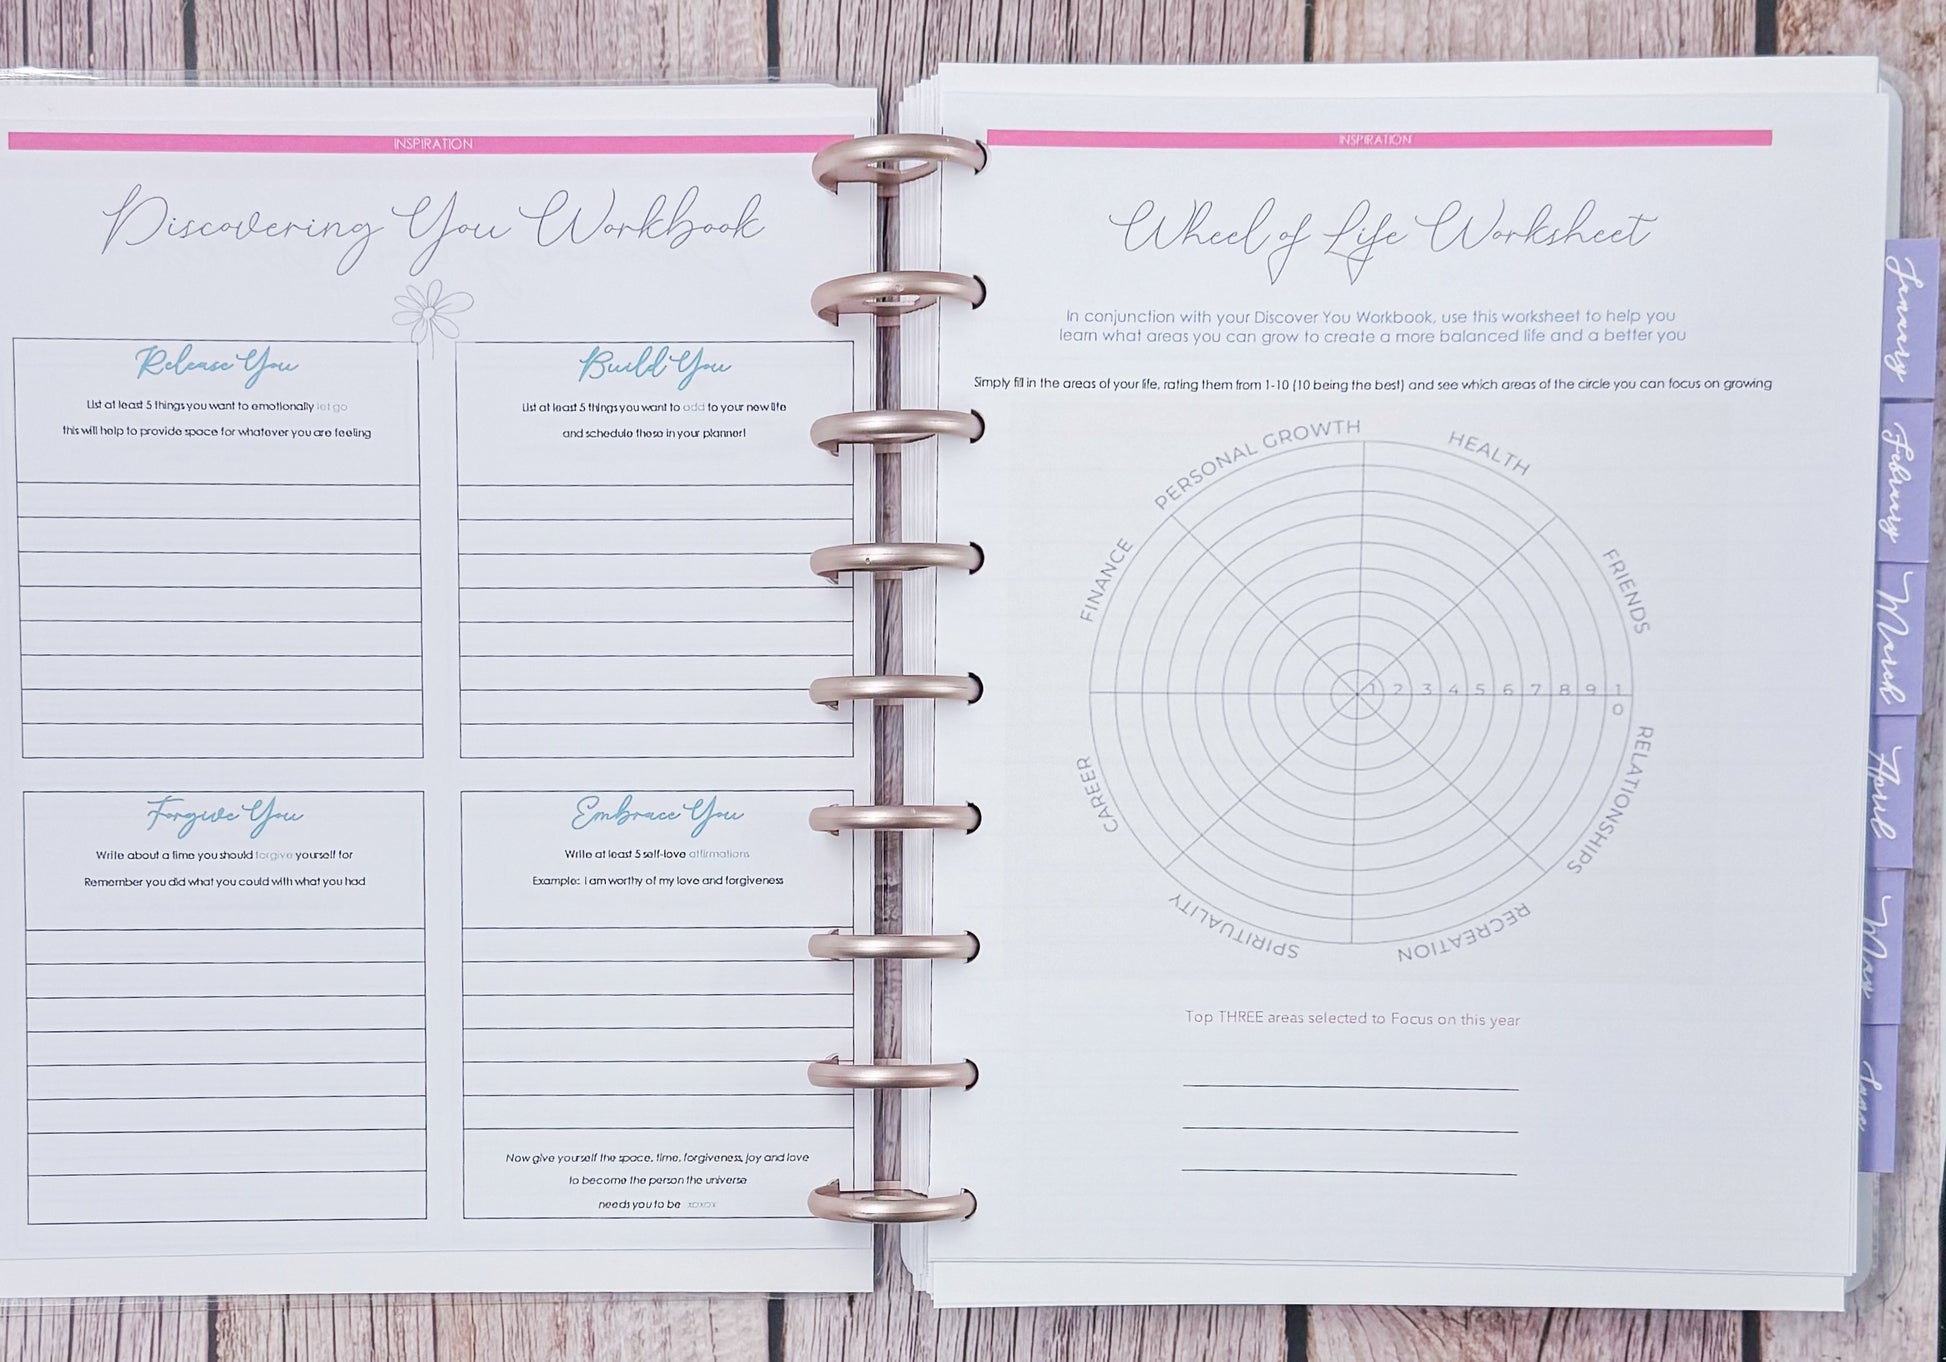 INSPIRATION
Discovering You Workbook
Release You
List at least 5 things you want to emotionally let go
this will help to provide space for whatever you are feeling
Build You
List at least 5 things you want to add to your new life
and schedule those in your planner!
Forgive You
Write about a time you should forgive yourself for
Remember you did what you could with what you had
Embrace You
Write at least 5 self-love affirmations
Example: I am worthy of my love and forgiveness
Now give yourself the space, time, forgiveness, joy and love
to become the person the universe
needs you to be xoxox
INSPIRATION
Wheel of Life Worksheet
In conjunction with your Discover You Workbook, use this worksheet to help you
learn what areas you can grow to create a more balanced life and a better you
Simply fill in the areas of your life, rating them from 1-10 (10 being the best) and see which areas of the circle you can focus on growing
PERSONAL GROWTH
HEALTH
FINANCE
FRIENDS
1 2 3 4 5 6 7 8 9 1
0
CAREER
RELATIONSHIPS
SPIRITUALITY
RECREATION
Top THREE areas selected to Focus on this year
January
February
March
April
May
June